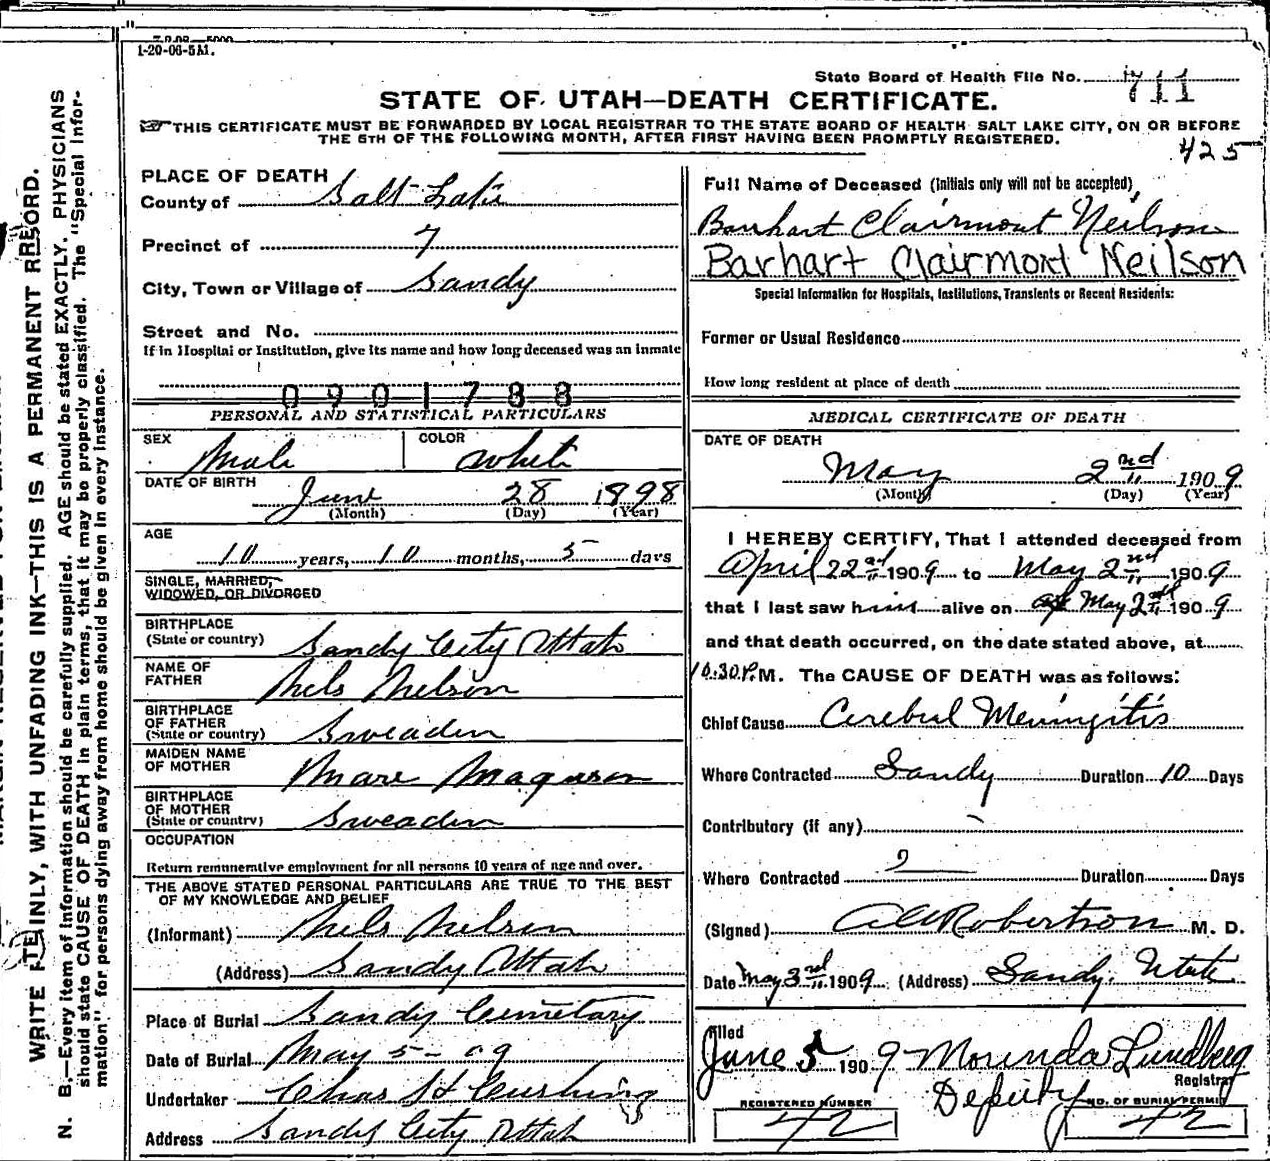 1-20-06-5M.
State Board of Health File No. 711
STATE OF UTAH—DEATH CERTIFICATE.
THIS CERTIFICATE MUST BE FORWARDED BY LOCAL REGISTRAR TO THE STATE BOARD OF HEALTH SALT LAKE CITY, ON OR BEFORE
THE 5TH OF THE FOLLOWING MONTH, AFTER FIRST HAVING BEEN PROMPTLY REGISTERED.
425
WRITE PLAINLY, WITH UNFADING INK—THIS IS A PERMANENT RECORD.
N. B.—Every item of information should be carefully supplied. AGE should be stated EXACTLY. PHYSICIANS
should state CAUSE OF DEATH in plain terms, that it may be properly classified. The "Special Infor-
mation" for persons dying away from home should be given in every instance.
PLACE OF DEATH
County of Salt Lake
Precinct of 7
City, Town or Village of Sandy
Street and No.
If in Hospital or Institution, give its name and how long deceased was an inmate
0901788
PERSONAL AND STATISTICAL PARTICULARS
SEX Male COLOR White
DATE OF BIRTH June 28 1898
(Month) (Day) (Year)
AGE
10 years, 10 months, 5 days
SINGLE, MARRIED,
WIDOWED, OR DIVORCED
BIRTHPLACE
(State or country) Sandy City Utah
NAME OF
FATHER Nels Nelson
BIRTHPLACE
OF FATHER
(State or country) Sweaden
MAIDEN NAME
OF MOTHER
BIRTHPLACE
OF MOTHER
(State or country) Sweaden
OCCUPATION
Return remunerative employment for all persons 10 years of age and over.
THE ABOVE STATED PERSONAL PARTICULARS ARE TRUE TO THE BEST
OF MY KNOWLEDGE AND BELIEF
(Informant) Nels Nelson
(Address) Sandy Utah
Place of Burial Sandy Cemetary
Date of Burial May 5-09
Undertaker Chas H Cushing
Address Sandy City Utah
Full Name of Deceased (Initials only will not be accepted)
Barhart Clairmont Neilson
Barhart Clairmont Neilson
Special Information for Hospitals, Institutions, Transients or Recent Residents:
Former or Usual Residence
How long resident at place of death
MEDICAL CERTIFICATE OF DEATH
DATE OF DEATH
May 2nd 1909
(Month) (Day) (Year)
I HEREBY CERTIFY, That I attended deceased from
April 22nd 1909 to May 2nd 1909
that I last saw him alive on May 2nd 1909
and that death occurred, on the date stated above, at
10.30 P.M. The CAUSE OF DEATH was as follows:
Chief Cause Cerebul Meningitis
Where Contracted Sandy Duration 10 Days
Contributory (if any) -
Where Contracted Duration Days
(Signed) Robertson M. D.
Date May 3rd 1909 (Address) Sandy, Utah
Filed
June 5 1909 Morinda Lundberg
Registrar
Deputy
REGISTERED NUMBER NO. OF BURIAL PERMIT
42 42